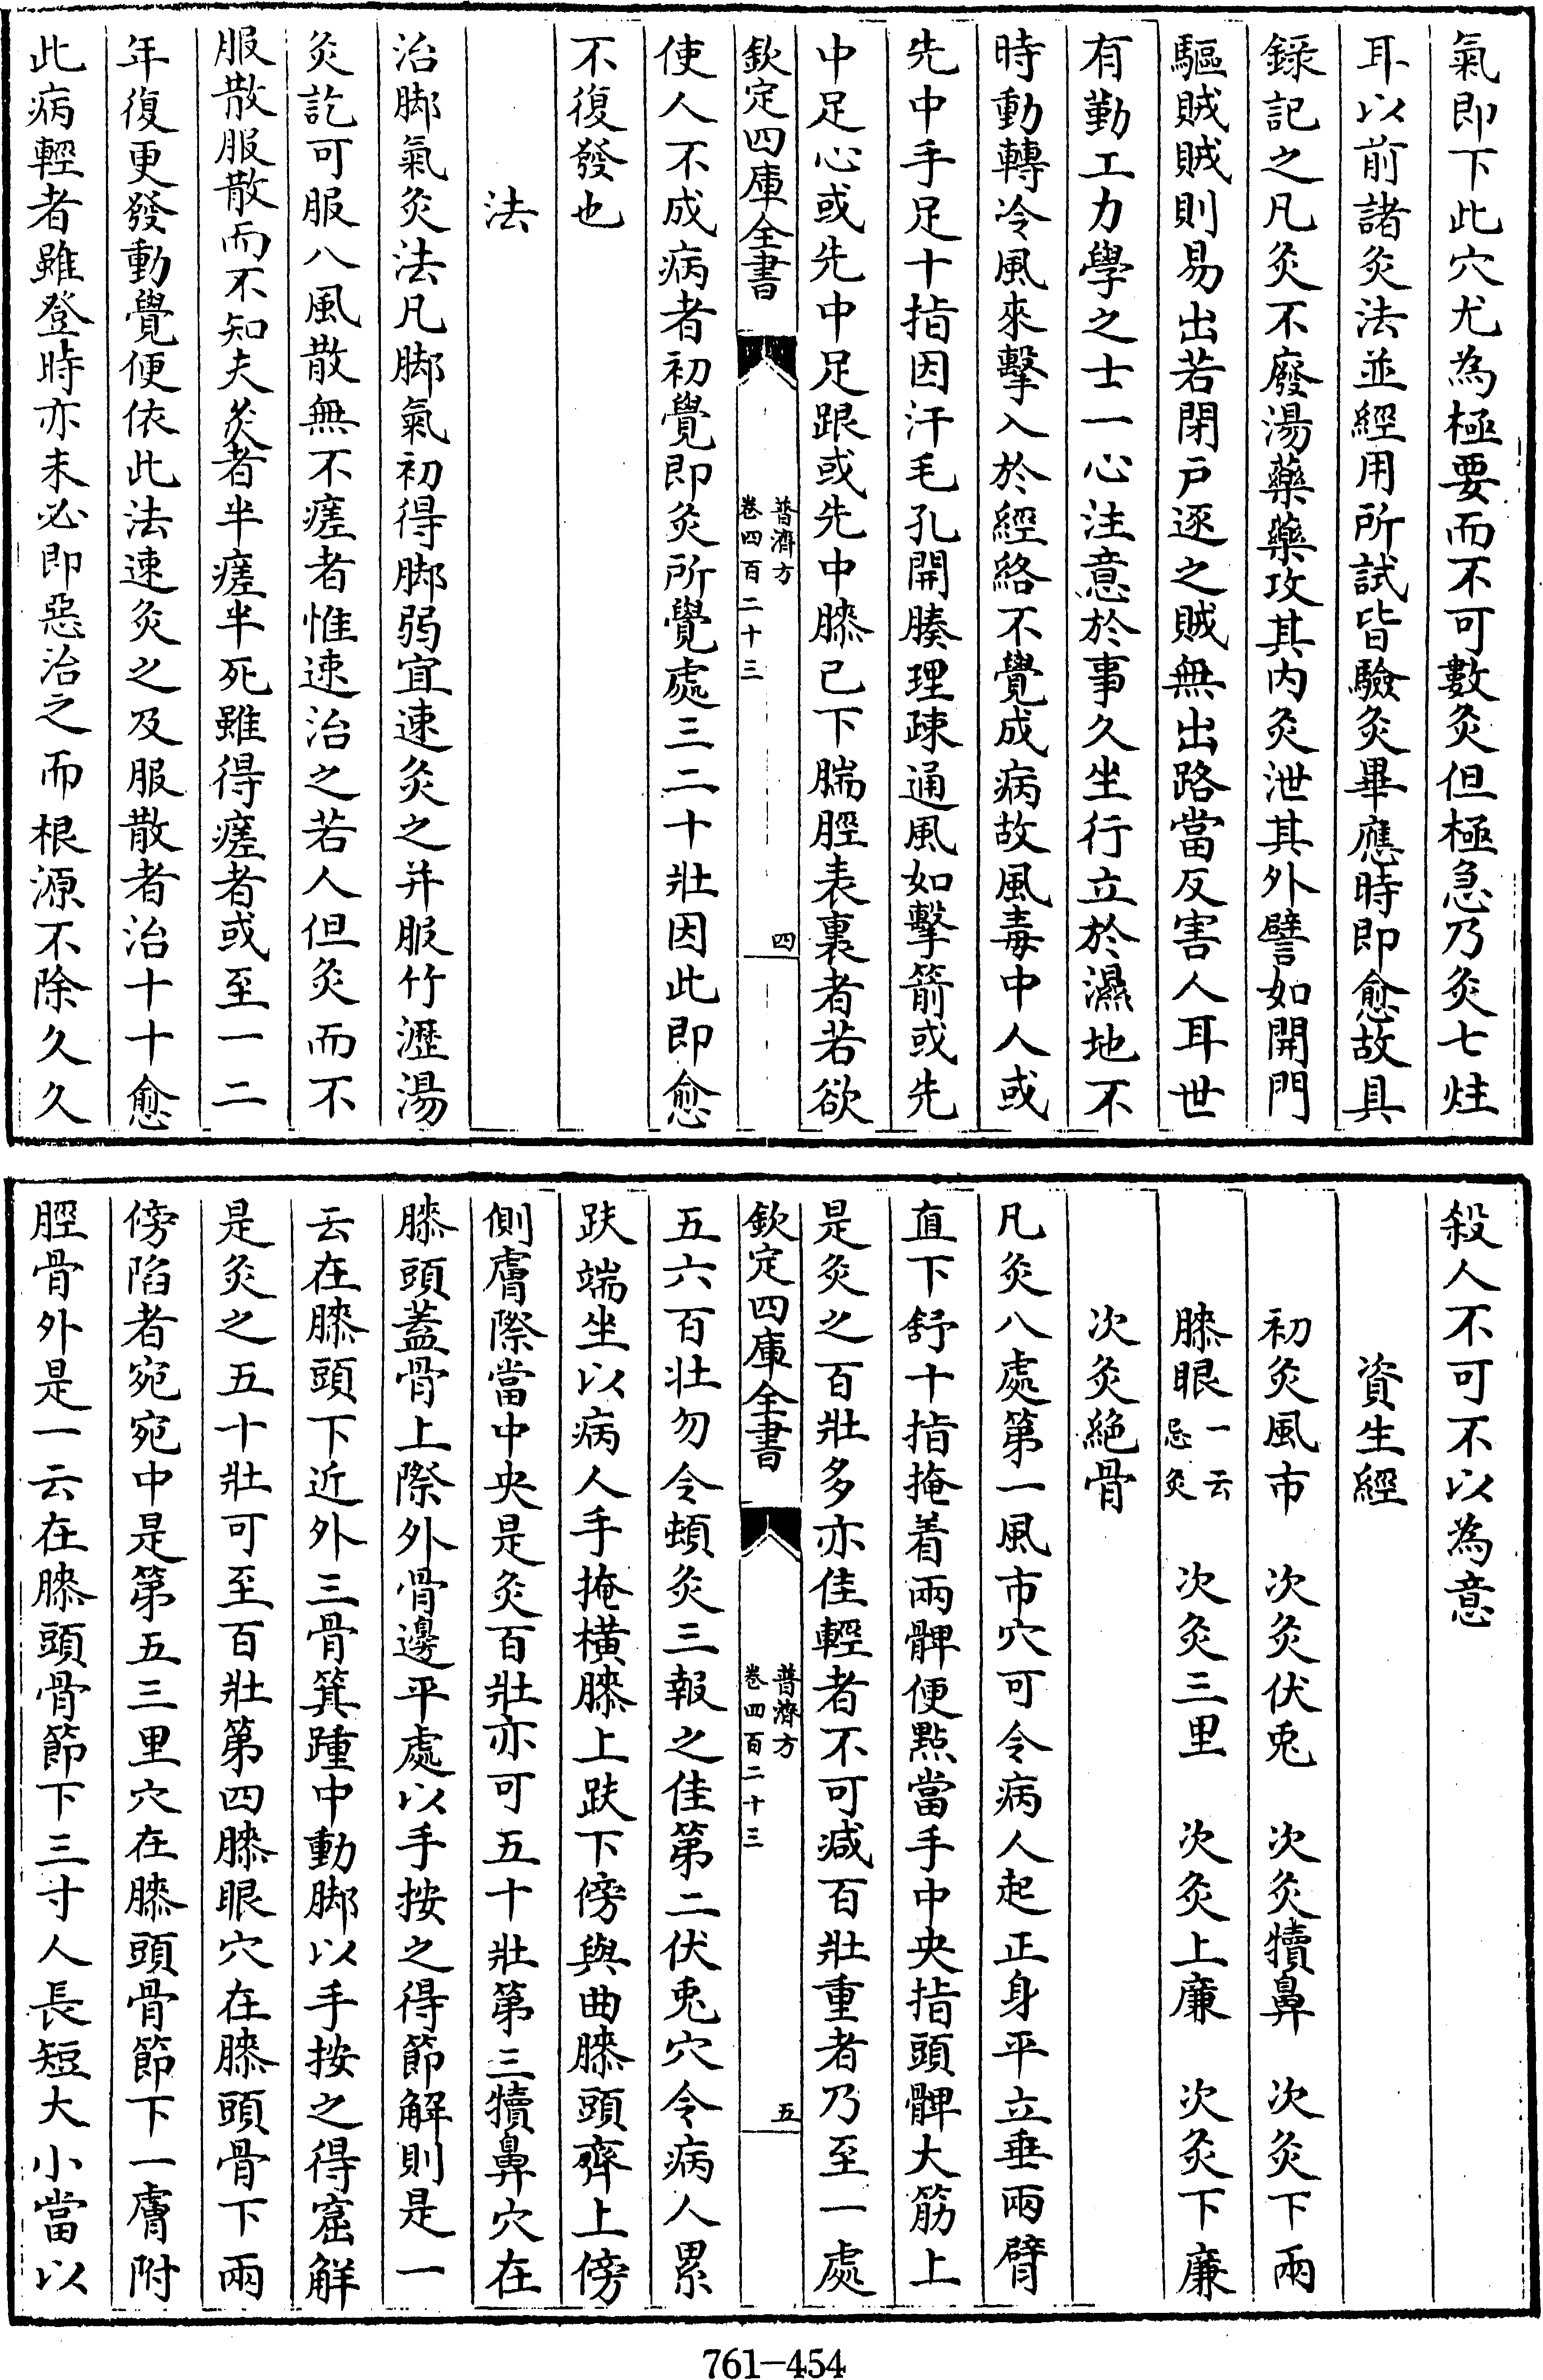 氣即下此穴尤為極要而不可數灸但極急乃灸七炷
耳以前諸灸法並經用所試皆驗灸畢應時即愈故具
錄記之凡灸不廢湯藥藥攻其內灸泄其外譬如開門
驅賊賊則易出若閉戸逐之賊無出路當反害人耳世
有勤工力學之士一心注意於事久坐行立於濕地不
時動轉冷風來擊入於經絡不覺成病故風毒中人或
先中手足十指因汗毛孔開腠理疎通風如擊箭或先
中足心或先中足跟或先中膝已下腨脛表裏者若欲
欽定四庫全書
普濟方
卷四百二十三
四
使人不成病者初覺即灸所覺處三二十壯因此即愈
不復發也
法
治脚氣灸法凡脚氣初得脚弱宜速灸之并服竹瀝湯
灸訖可服八風散無不瘥者惟速治之若人但灸而不
服散服散而不知夫灸者半瘥半死雖得瘥者或至一二
年復更發動覺便依此法速灸之及服散者治十十愈
此病輕者雖登時亦未必即惡治之而根源不除久久
殺人不可不以為意
資生經
初灸風市 次灸伏兎 次灸犢鼻 次灸下兩
膝眼一云忌灸 次灸三里 次灸上廉 次灸下廉
次灸絶骨
凡灸八處第一風市穴可令病人起正身平立垂兩臂
直下舒十指掩着兩髀便點當手中央指頭髀大筋上
是灸之百壯多亦佳輕者不可減百壯重者乃至一處
欽定四庫全書
普濟方
卷四百二十三
五
五六百壯勿令頓灸三報之佳第二伏兎穴令病人累
趺端坐以病人手掩橫膝上趺下傍與曲膝頭齊上傍
側膚際當中央是灸百壯亦可五十壯第三犢鼻穴在
膝頭蓋骨上際外骨邊平處以手按之得節解則是一
云在膝頭下近外三骨箕踵中動脚以手按之得窟解
是灸之五十壯可至百壯第四膝眼穴在膝頭骨下兩
傍陷者宛宛中是第五三里穴在膝頭骨節下一膚附
脛骨外是一云在膝頭骨節下三寸人長短大小當以
761-454